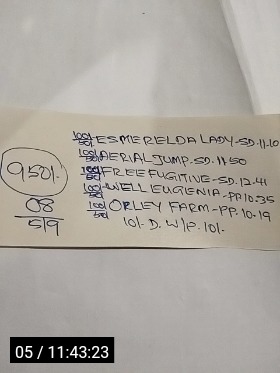 100/50 ESMERELDA LADY-SD.11.10
100/50 AERIAL JUMP.SD.11.50
100/50 FREE FUGITIVE-SD.12.41
100/50 WELL EUGENIA-PP.10.35
100/50 ORLEY FARM-PP.10.19
10/-D.W/P.10/-
950/-
08
5/9
05 / 11:43:23